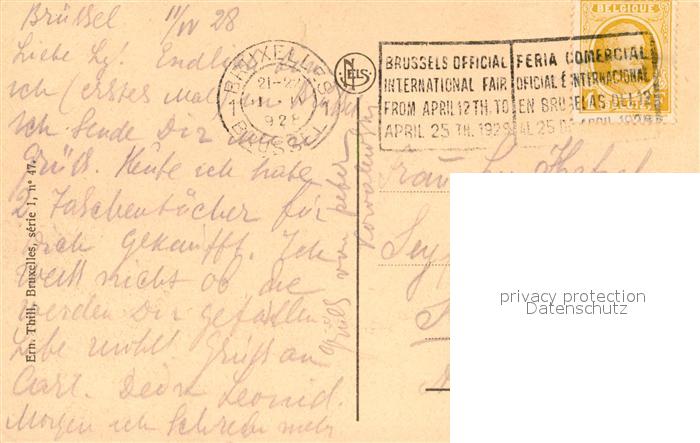 Brüssel 11/IV 28
Liebe Ly! Endlich
ich (erstes Mal
ich sende Dir
Grüß. Heute ich habe
2 Taschentücher für
Dich gekaufft. Ich
weiß nicht ob die
werden Dir gefallen.
Lebe wohl Gruß an
Carl. Dein Leonid.
Morgen ich schreibe mehr
Gruß von
Ern. Thill, Bruxelles, série 1, n° 47.
BRUXELLES
21-22
11 IV
1928
BRUSSEL
NELS
BRUSSELS OFFICIAL
INTERNATIONAL FAIR
FROM APRIL 12TH. TO
APRIL 25 TH. 1928
FERIA COMERCIAL
OFICIAL É INTERNACIONAL
EN BRUSELAS DEL 12
AL 25 DE APRIL 1928
BELGIQUE
Frau Ly
privacy protection
Datenschutz